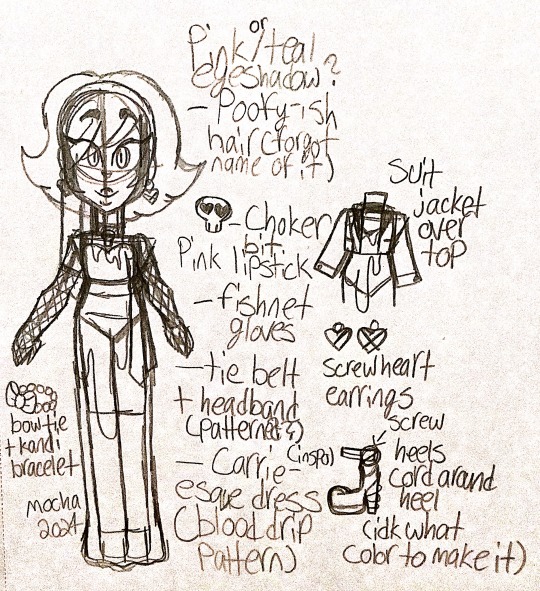 Pink/teal
or
eyeshadow?
- Poofy-ish
hair (forgot
name of it)
- Choker
bit
Pink lipstick
- fishnet
gloves
- tie belt
+ headband
(patterned?)
- Carrie- (inspo)
esque dress
(blood drip
pattern)
Suit
jacket
over
top
screwheart
earrings
screw
heels
cord around
heel
(idk what
color to make it)
bowtie
+ kandi
bracelet
mocha
2024